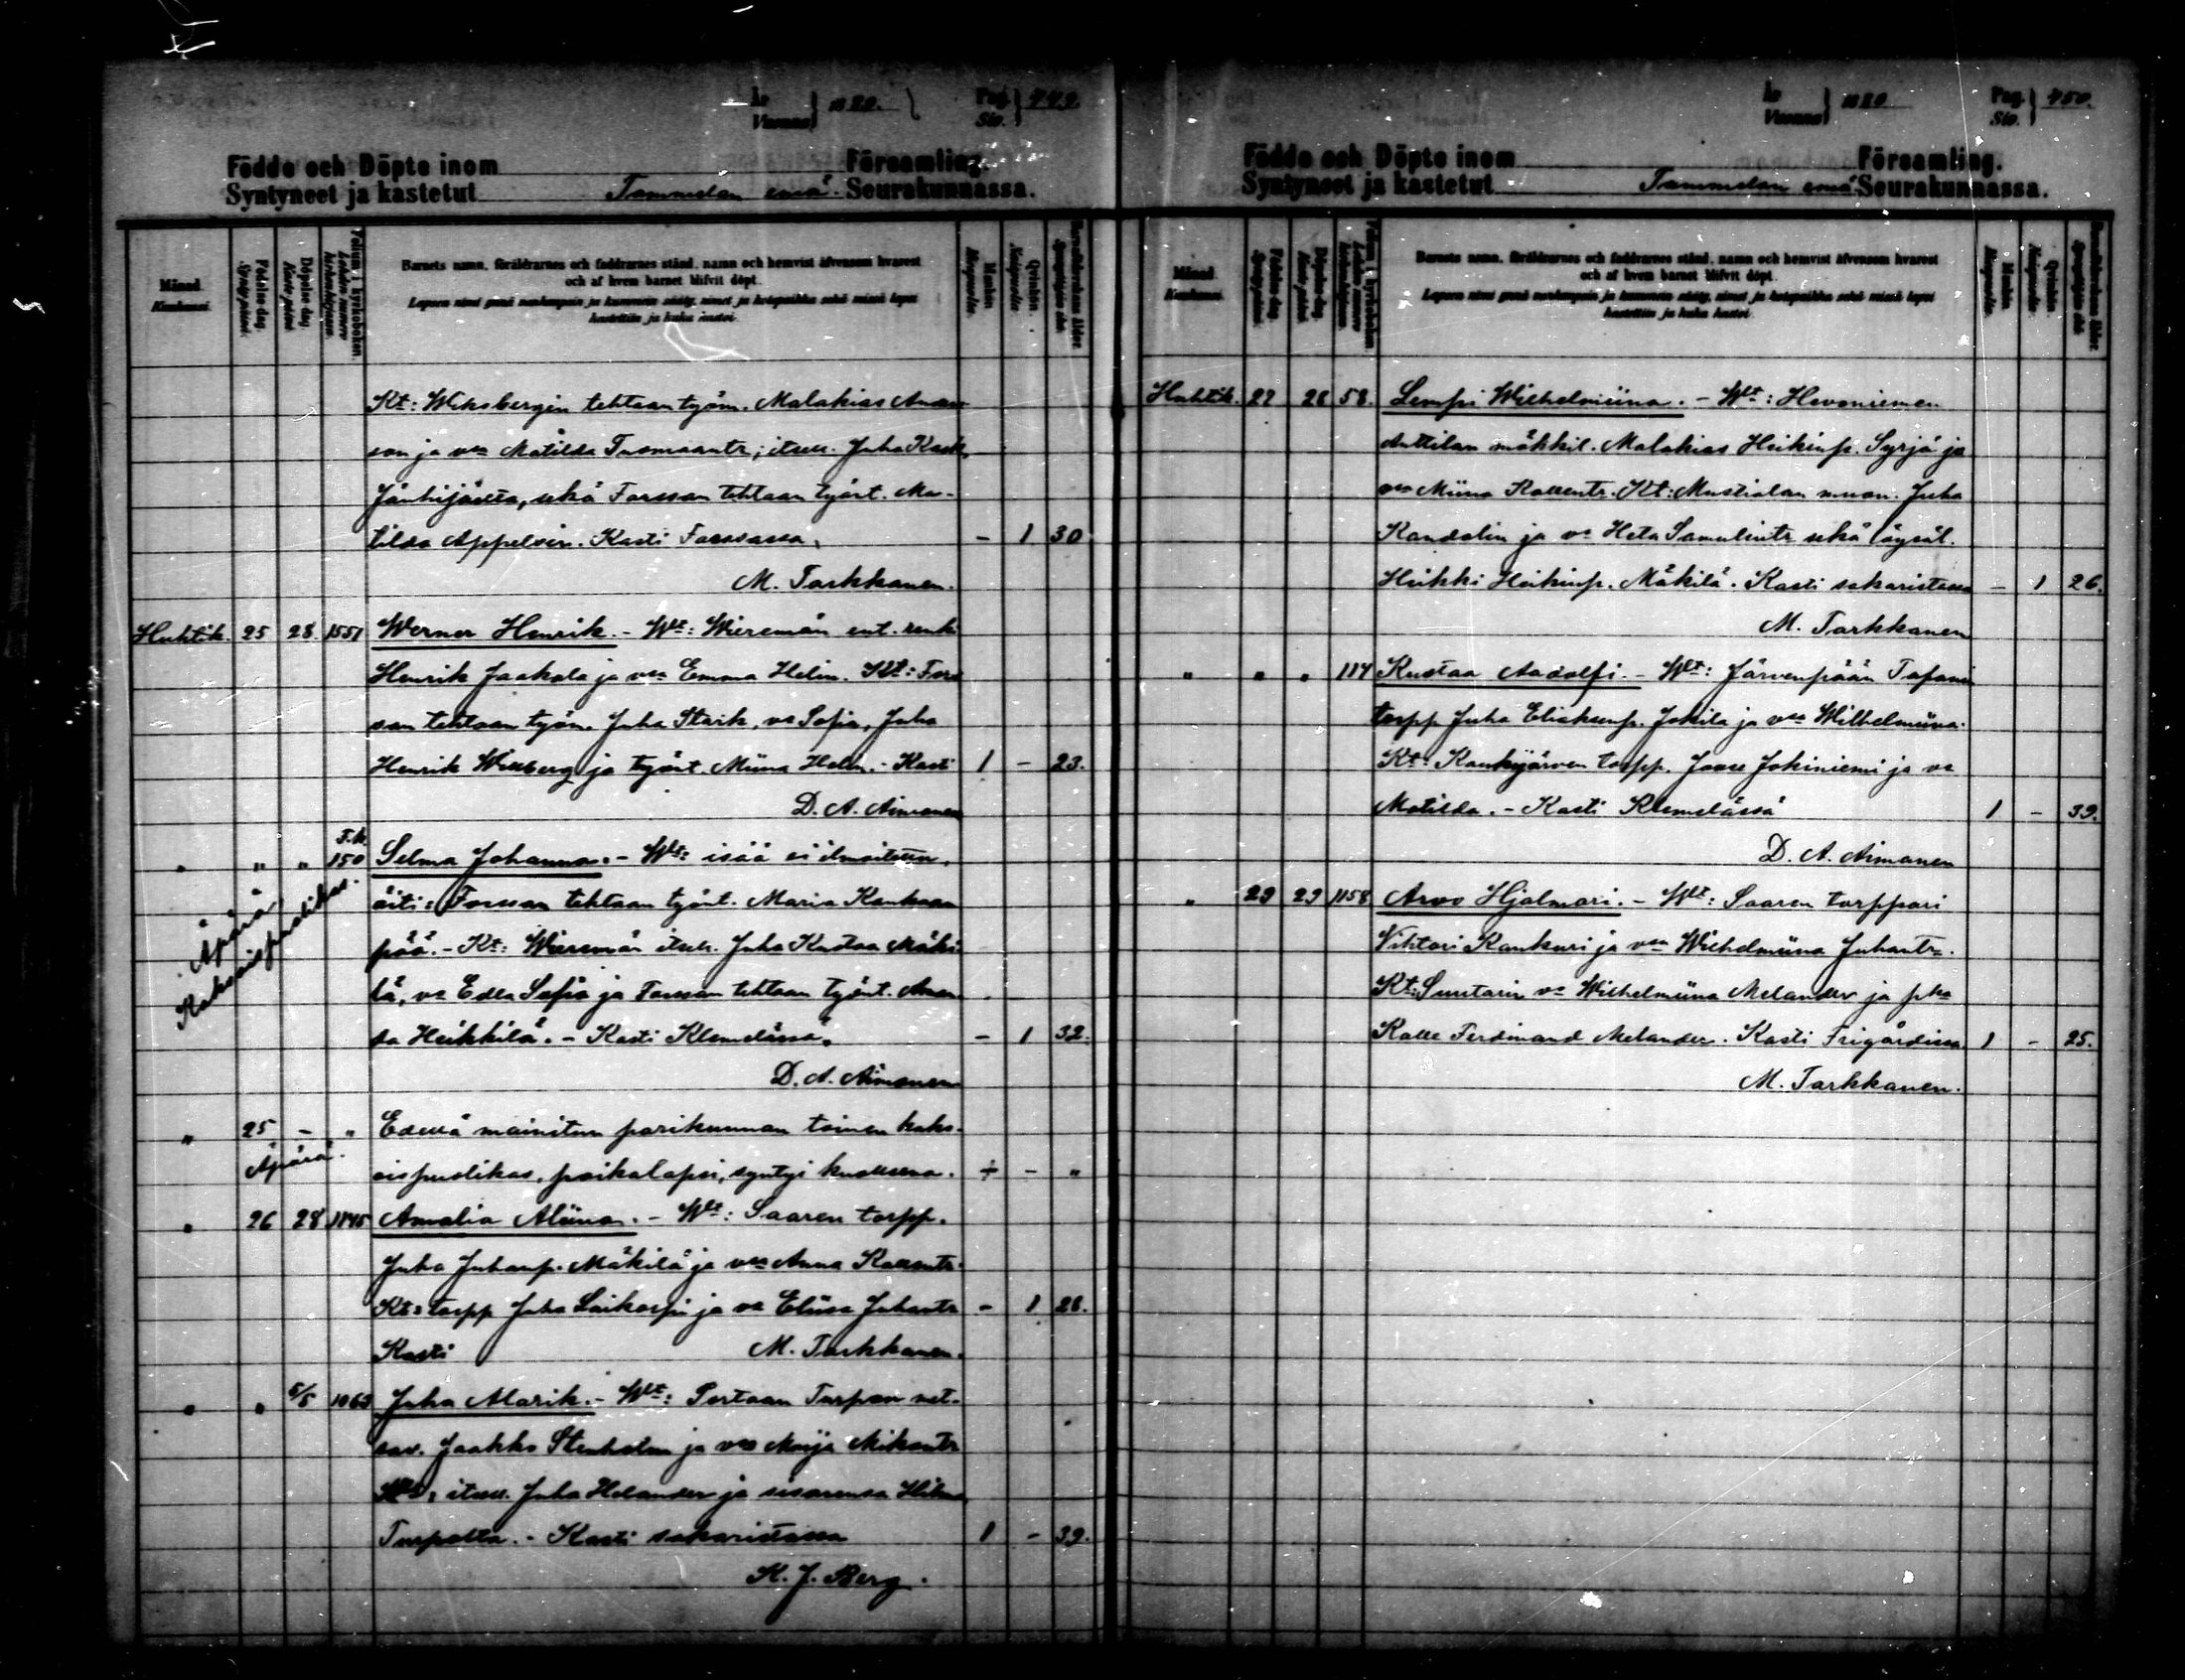 År
Vuonna } 1889.
Pag.
Siv. } 449.
Födde och Döpte inom Församling.
Syntyneet ja kastetut Tammelan emä Seurakunnassa.
Månad. Kuukausi.
Födelse dag. Syntypäivä.
Döpelse dag. Kastepäivä.
Folium i kyrkoboken. Lehden numero kirkonkirjassa.
Barnets namn, föräldrarnes och faddrarnes stånd, namn och hemvist äfvensom hvarest
och af hvem barnet blifvit döpt.
Lapsen nimi ynnä vanhempain ja kummein sääty, nimet ja kotopaikka sekä missä lapsi
kastettiin ja kuka kastoi.
Mankön. Miespuolta.
Qvinkön. Naispuolta.
Kt: Wiksbergin tehtaan työm. Malakias Anders-
son ja vaa Matilda Tuomaantr; itsell. Juha Kask,
Jänhijästä, sekä Forssan tehtaan työnt. Ma-
tilda Appelvir. Kasti Forssassa, - 1 30
M. Tarkkanen.
Huhtik. 25 28. 1551 Werner Henrik. - Wt: Wieremän ent. renki
Henrik Jaakola ja vaa Emma Helin. Kt: Fors
san tehtaan työm. Juha Stark, va Sofia, Juha
Henrik Wikberg ja työnt. Miina Helin. - Kasti 1 - 23.
D. A. Aimonen
" " " F.k. 150 Selma Johanna. - Wt: isää ei ilmoitettu,
Äpärä.
Kaksoispuolikas.
äiti: Forssan tehtaan työnt. Maria Kankaan
pää. - Kt: Wieremän itsell. Juha Kustaa Mäki-
lä, va Edla Sofia ja Forssan tehtaan työnt. Aman
da Heikkilä. - Kasti Klemelässä. - 1 32.
D. A. Aimonen
" 25 - " Edellä mainitun parikunnan toinen kaks-
Äpärä.
oispuolikas, poikalapsi, syntyi kuolleena. + - "
" 26 28 1845 Amalia Aliina. - Wt: Saaren torpp.
Juha Juhanp. Mäkilä ja vaa Anna Kallentr.
Kt: torpp Juha Laikorpi ja va Eliisa Juhantr - 1 26.
Kasti M. Tarkkanen.
" " 5/5 1063 Juha Alarik. - Wt: Portaan Turpan met-
sav. Jaakko Stenholm ja vaa Maija Mikontr
Kt: itsell. Juha Helander ja sisarensa Hilma
Turpalta. - Kasti sakaristassa 1 - 39.
K. J. Berg.
År
Vuonna } 1889
Pag.
Siv. } 450.
Födde och Döpte inom Församling.
Syntyneet ja kastetut Tammelan emä Seurakunnassa.
Månad. Kuukausi.
Födelse dag. Syntypäivä.
Döpelse dag. Kastepäivä.
Folium i kyrkoboken. Lehden numero kirkonkirjassa.
Barnets namn, föräldrarnes och faddrarnes stånd, namn och hemvist äfvensom hvarest
och af hvem barnet blifvit döpt.
Lapsen nimi ynnä vanhempain ja kummein sääty, nimet ja kotopaikka sekä missä lapsi
kastettiin ja kuka kastoi.
Mankön. Miespuolta.
Qvinkön. Naispuolta.
Huhtik. 27 28 58. Lempi Wilhelmiina. - Wt: Hevoniemen
Anttilan mökkil. Malakias Heikinp. Syrjä ja
vaa Miina Kallentr. Kt: Mustialan muon. Juha
Randelin ja va Heta Samulintr sekä löysäl.
Heikki Heikinp. Mäkilä. Kasti sakaristassa - 1 26.
M. Tarkkanen
" " " 114 Kustaa Aadolfi. - Wt: Järvenpään Tapanin
torpp Juha Eliaksenp. Jokila ja vaa Wilhelmiina.
Kt: Kaukijärven torpp. Joose Jokiniemi ja va
Matilda. - Kasti Klemelässä 1 - 39.
D. A. Aimonen
" 29 29 1158 Arvo Hjalmari. - Wt: Saaren torppari
Vihtori Kankuri ja vaa Wilhelmiina Juhantr.
Kt: Suutarin va Wilhelmiina Melander ja pka
Kalle Ferdinand Melander. Kasti Frigårdissa 1 - 25.
M. Tarkkanen.